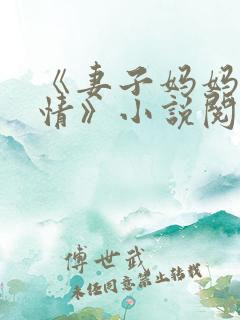 《妻子妈妈
情》小説閱
傅世武
未经同意禁止转载